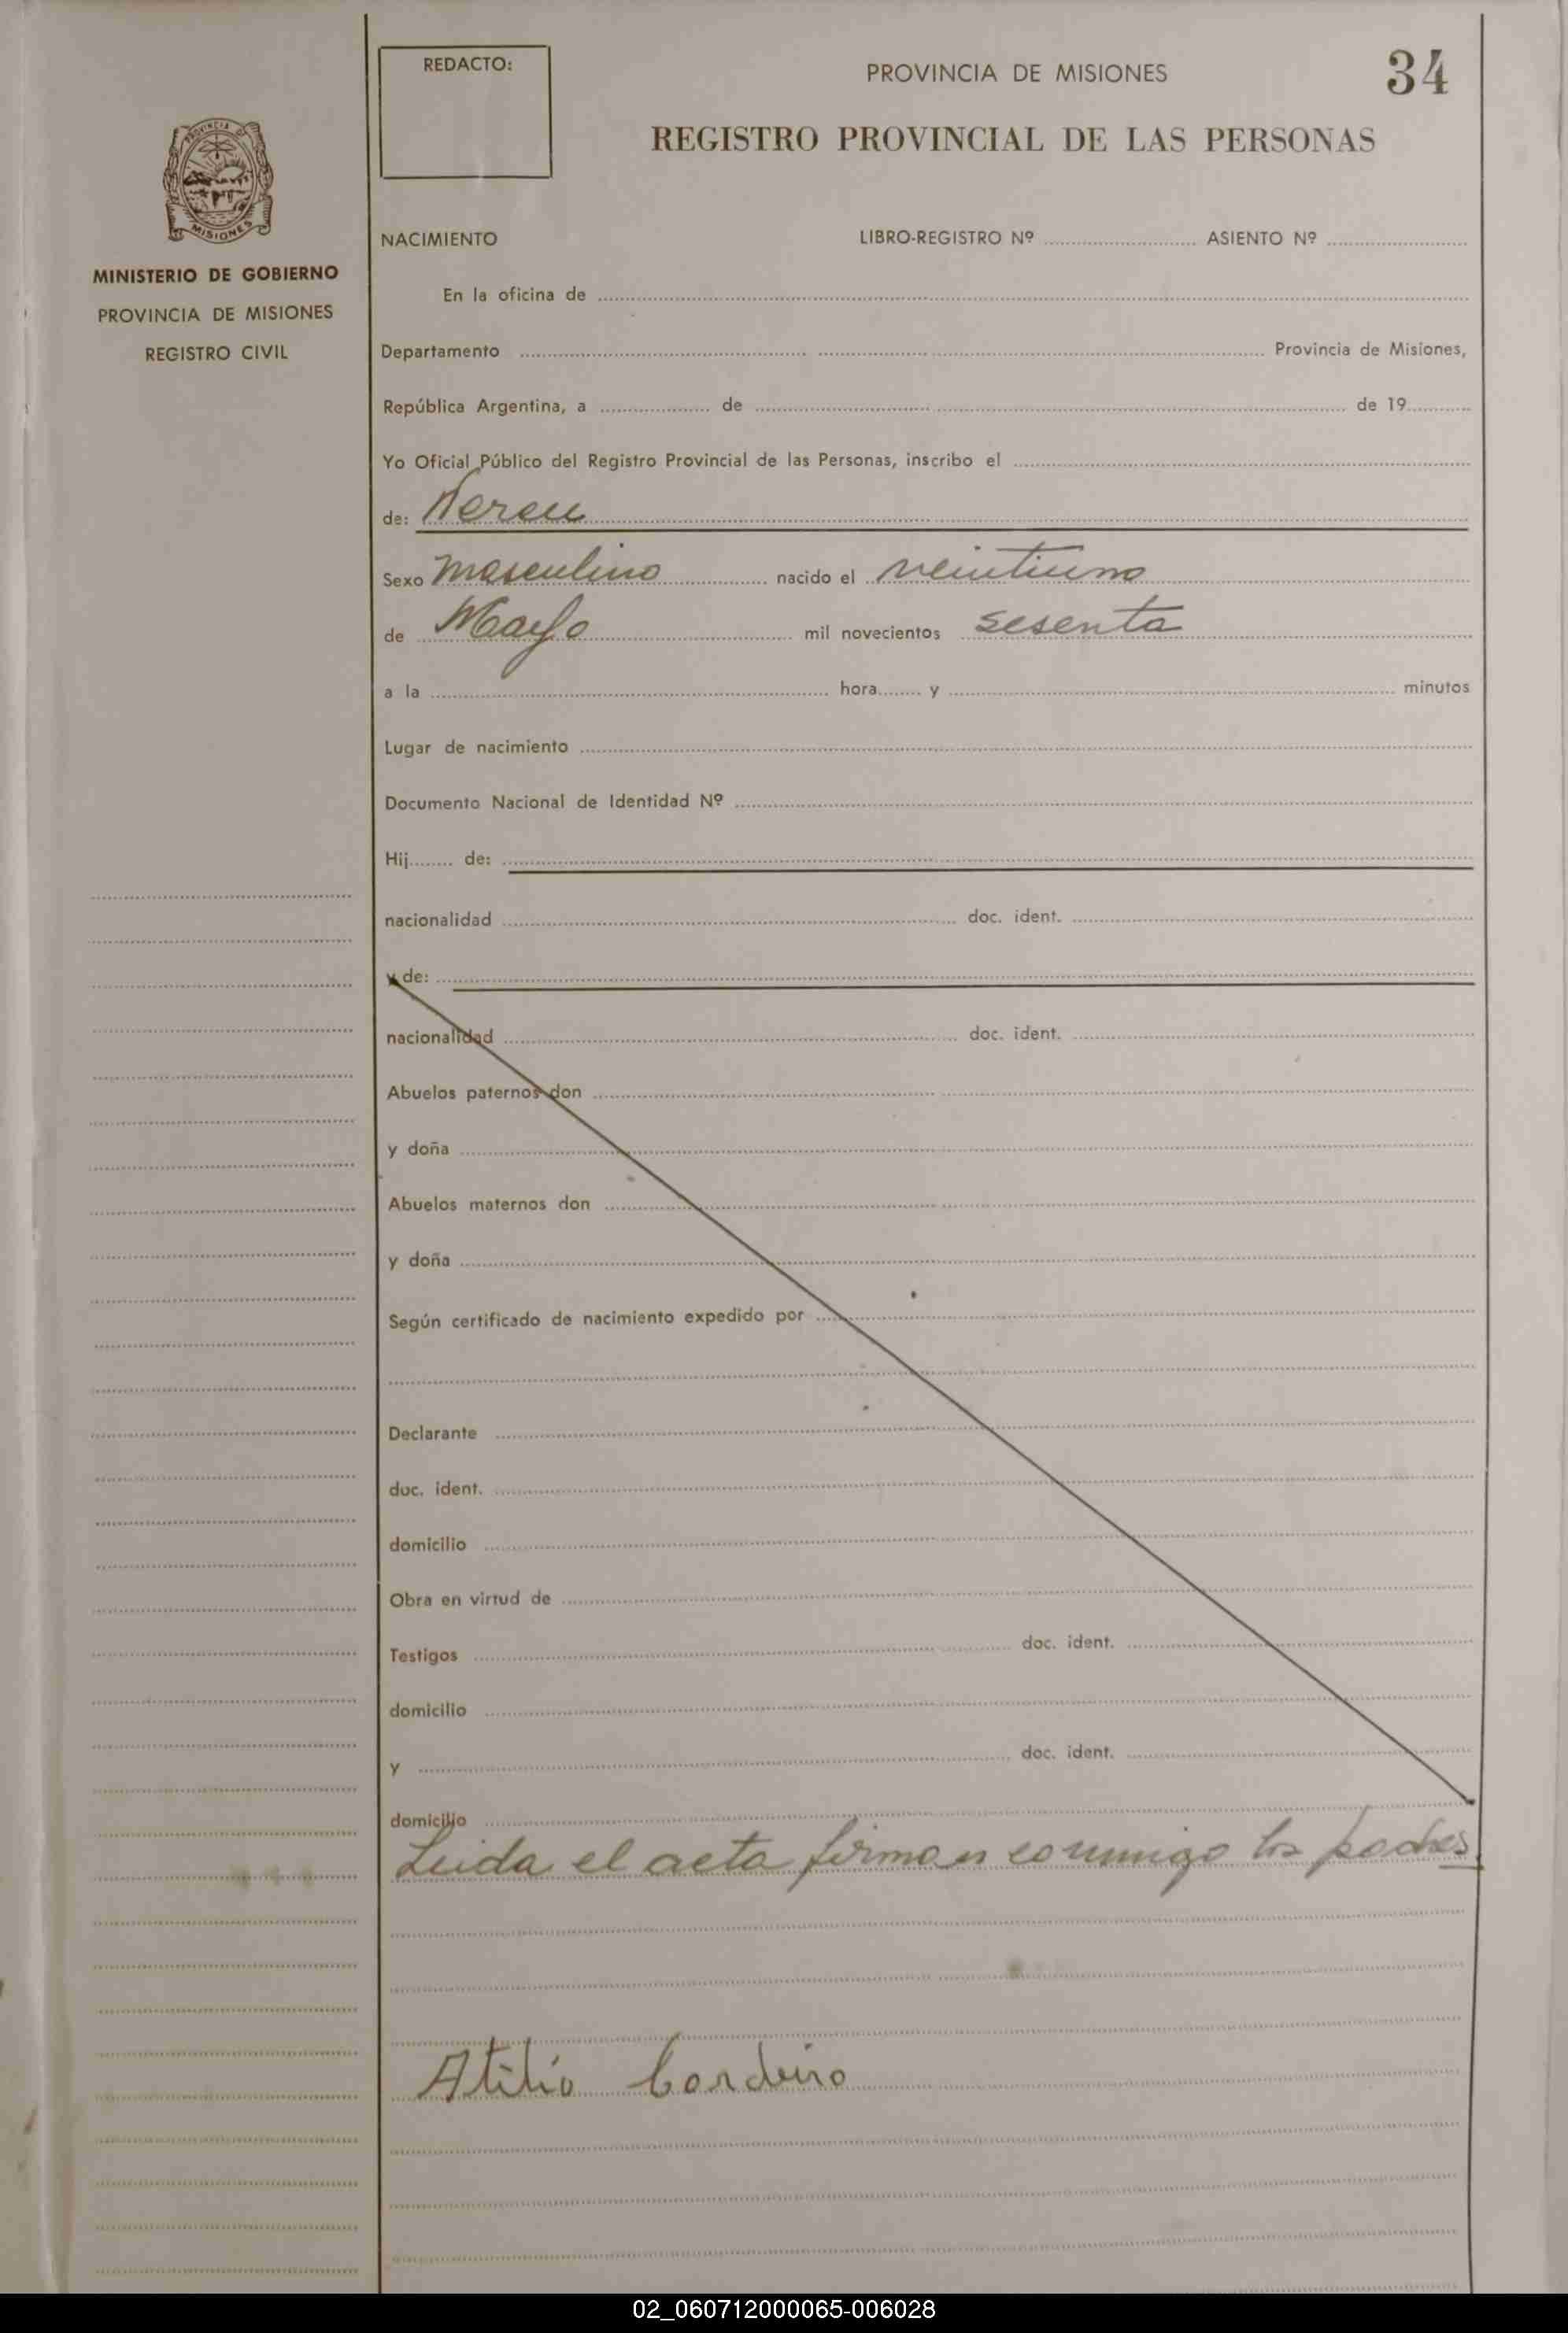 REDACTO:
PROVINCIA DE MISIONES
34
REGISTRO PROVINCIAL DE LAS PERSONAS
PROVINCIA DE
MISIONES
MINISTERIO DE GOBIERNO
PROVINCIA DE MISIONES
REGISTRO CIVIL
NACIMIENTO LIBRO-REGISTRO Nº ASIENTO Nº
En la oficina de
Departamento Provincia de Misiones,
República Argentina, a de de 19
Yo Oficial Público del Registro Provincial de las Personas, inscribo el
de: Nereu
Sexo masculino nacido el veintiuno
de Mayo mil novecientos sesenta
a la hora y minutos
Lugar de nacimiento
Documento Nacional de Identidad Nº
Hij de:
nacionalidad doc. ident.
y de:
nacionalidad doc. ident.
Abuelos paternos don
y doña
Abuelos maternos don
y doña
Según certificado de nacimiento expedido por
Declarante
doc. ident.
domicilio
Obra en virtud de
Testigos doc. ident.
domicilio
y doc. ident.
domicilio
Leida el acta firman conmigo los padres
Atilio Cordeiro
02_060712000065-006028